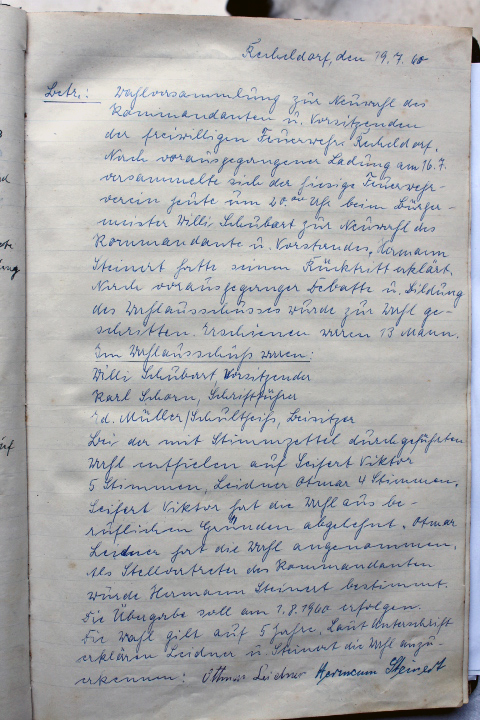 Kerbeldorf, den 19.7.60
Betr.: Wahlversammlung zur Neuwahl des
Kommandanten u. Vorsitzenden
der freiwilligen Feuerwehr Kerbeldorf.
Nach vorausgegangener Ladung am 16.7.
versammelte sich der hiesige Feuerwehr-
verein heute um 20.00 Uhr beim Bürger-
meister Willi Schubart zur Neuwahl des
Kommandante u. Vorstandes. Hermann
Steinert hatte seinen Rücktritt erklärt.
Nach vorausgeganger Debatte u. Bildung
des Wahlausschusses wurde zur Wahl ge-
schritten. Erschienen waren 13 Mann.
Im Wahlausschuß waren:
Willi Schubart, Vorsitzender
Karl Schorn, Schriftführer
Ed. Müller/Schultheiß, Beisitzer
Bei der mit Stimmzettel durchgeführten
Wahl entfielen auf Seifert Viktor
5 Stimmen, Leidner Otmar 4 Stimmen.
Seifert Viktor hat die Wahl aus be-
ruflichen Gründen abgelehnt. Otmar
Leidner hat die Wahl angenommen.
Als Stellvertreter des Kommandanten
wurde Hermann Steinert bestimmt.
Die Übergabe soll am 1.8.1960 erfolgen.
Die Wahl gilt auf 5 Jahre. Laut Unterschrift
erklären Leidner u Steinert die Wahl anzu-
erkennen: Ottmar Leidner Hermann Steinert